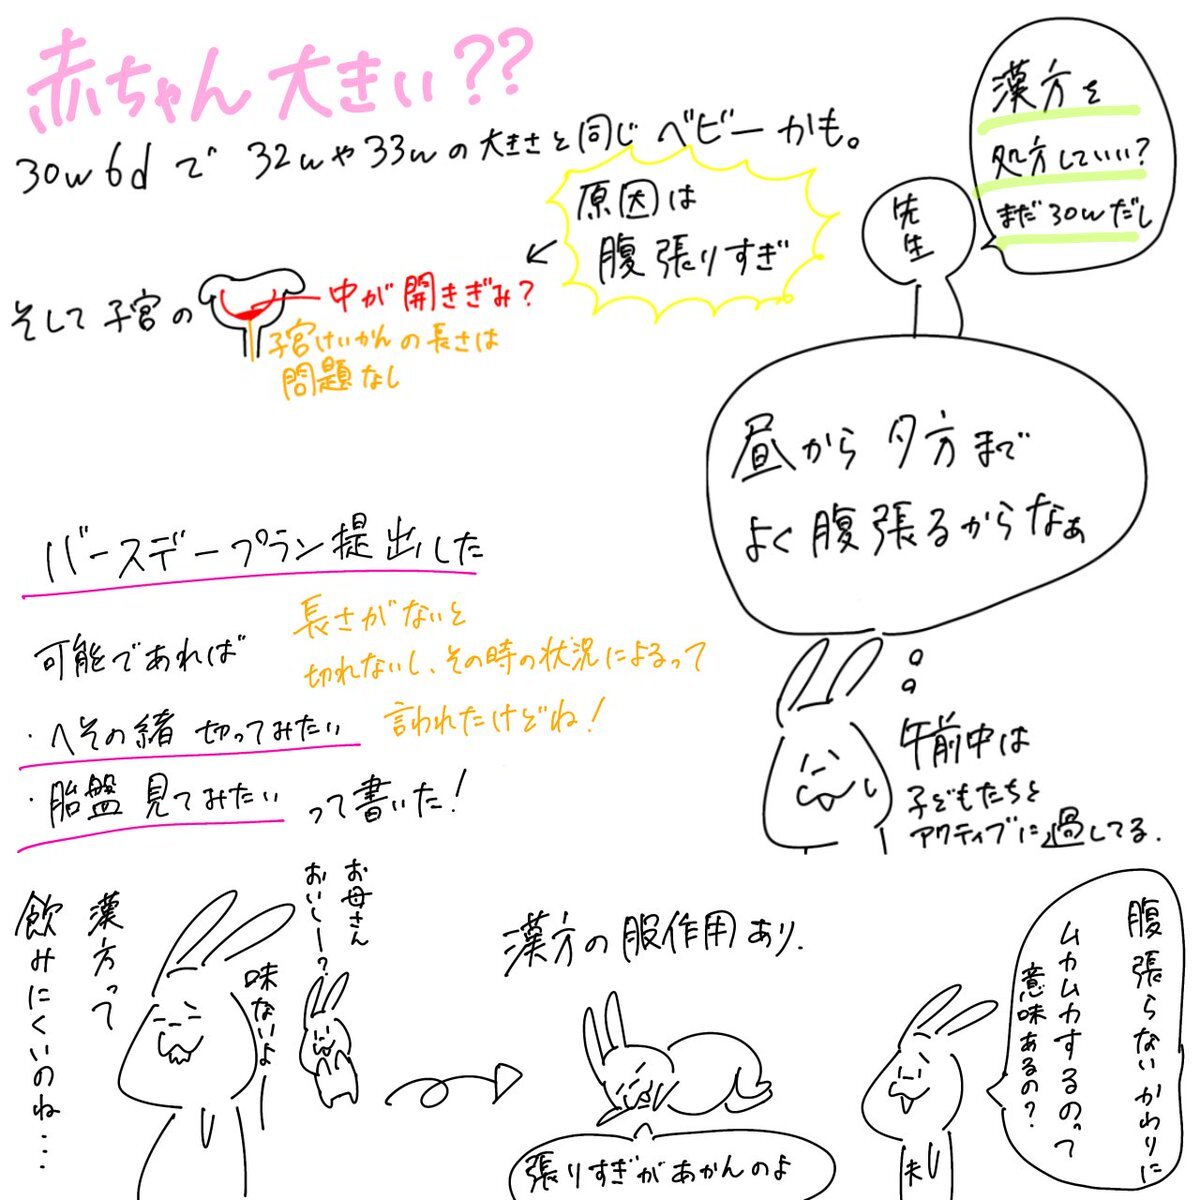 赤ちゃん大きい??
30w6dで32wや33wの大きさと同じベビーかも。
原因は
腹張りすぎ
漢方を
処方していい?
まだ30wだし
先生
そして子宮の
中が開きぎみ?
子宮けいかんの長さは
問題なし
昼から夕方まで
よく腹張るからなぁ
午前中は
子どもたちと
アクティブに過してる.
バースデープラン提出した
可能であれば
・へその緒 切ってみたい
・胎盤 見てみたい
って書いた!
長さがないと
切れないし、その時の状況によるって
言われたけどね!
漢方って
飲みにくいのね…
味ないよー
お母さん
おいしー?
漢方の服作用あり.
張りすぎがあかんのよ
腹張らないかわりに
ムカムカするのって
意味あるの?
夫